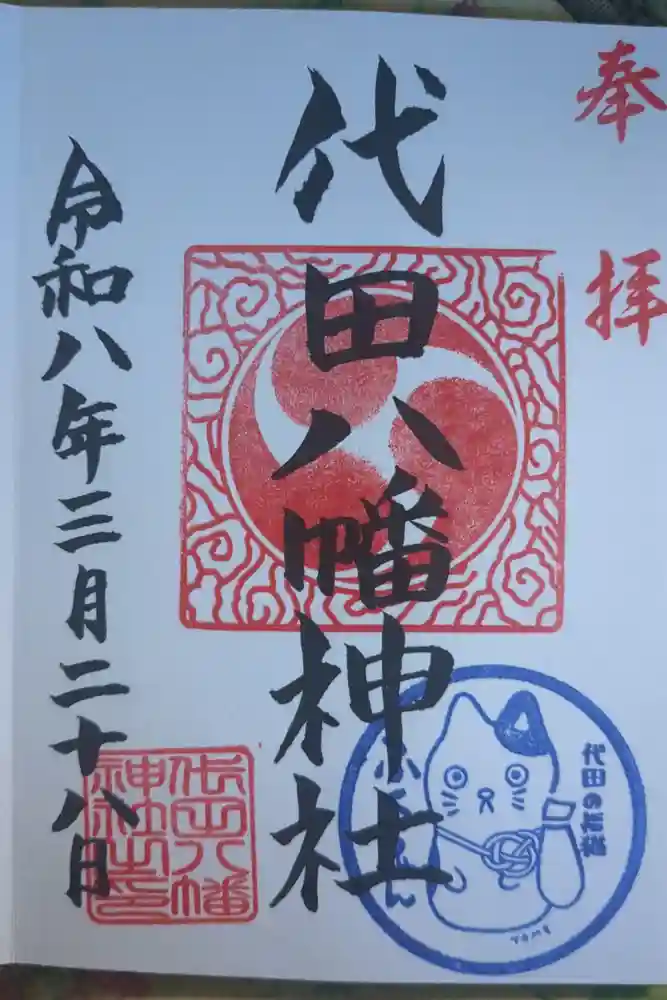 奉拝
代田八幡神社
令和八年三月二十八日
代田八幡神社之印
YOME